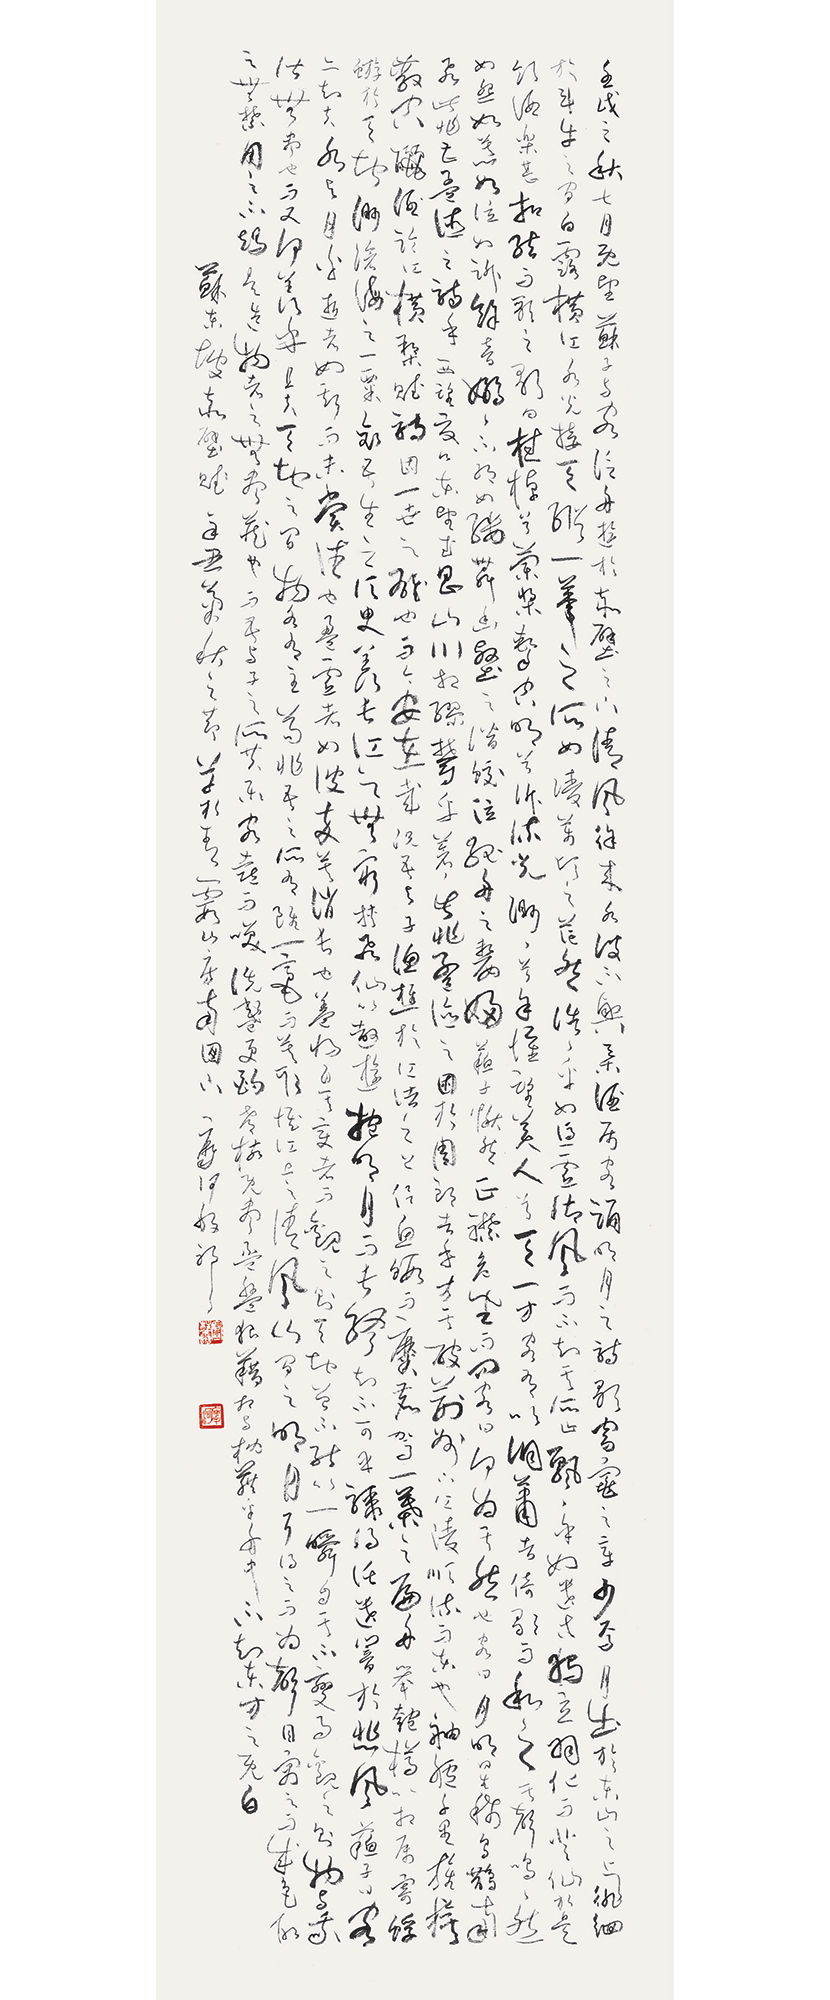 壬戌之秋七月既望蘇子與客泛舟遊於赤壁之下清風徐來水波不興舉酒屬客誦明月之詩歌窈窕之章少焉月出於東山之上徘徊
於斗牛之間白露橫江水光接天縱一葦之所如凌萬頃之茫然浩浩乎如馮虛御風而不知其所止飄飄乎如遺世獨立羽化而登仙於是
飲酒樂甚扣舷而歌之歌曰桂棹兮蘭槳擊空明兮泝流光渺渺兮予懷望美人兮天一方客有吹洞蕭者倚歌而和之其聲嗚嗚然
如怨如慕如泣如訴餘音嫋嫋不絕如縷舞幽壑之潛蛟泣孤舟之嫠婦蘇子愀然正襟危坐而問客曰何為其然也客曰月明星稀烏鵲南
飛此非孟德之詩乎西望夏口東望武昌山川相繆鬱乎蒼蒼此非孟德之困於周郎者乎方其破荊州下江陵順流而東也舳艫千里旌旗
蔽空釃酒臨江橫槊賦詩固一世之雄也而今安在哉況吾與子漁樵於江渚之上侶魚蝦而友麋鹿駕一葉之扁舟舉匏樽以相屬寄蜉
蝣於天地渺滄海之一粟哀吾生之須臾羨長江之無窮挾飛仙以遨遊抱明月而長終知不可乎驟得託遺響於悲風蘇子曰客
亦知夫水與月乎逝者如斯而未嘗往也盈虛者如彼而卒莫消長也蓋將自其變者而觀之則天地曾不能以一瞬自其不變者而觀之則物與我
皆無盡也而又何羨乎且夫天地之間物各有主苟非吾之所有雖一毫而莫取惟江上之清風與山間之明月耳得之而為聲目寓之而成色取
之無禁用之不竭是造物者之無盡藏也而吾與子之所共樂客喜而笑洗盞更酌肴核既盡杯盤狼藉相與枕藉乎舟中不知東方之既白
蘇東坡赤壁賦辛丑菊秋之節草於青霞山房南窗下